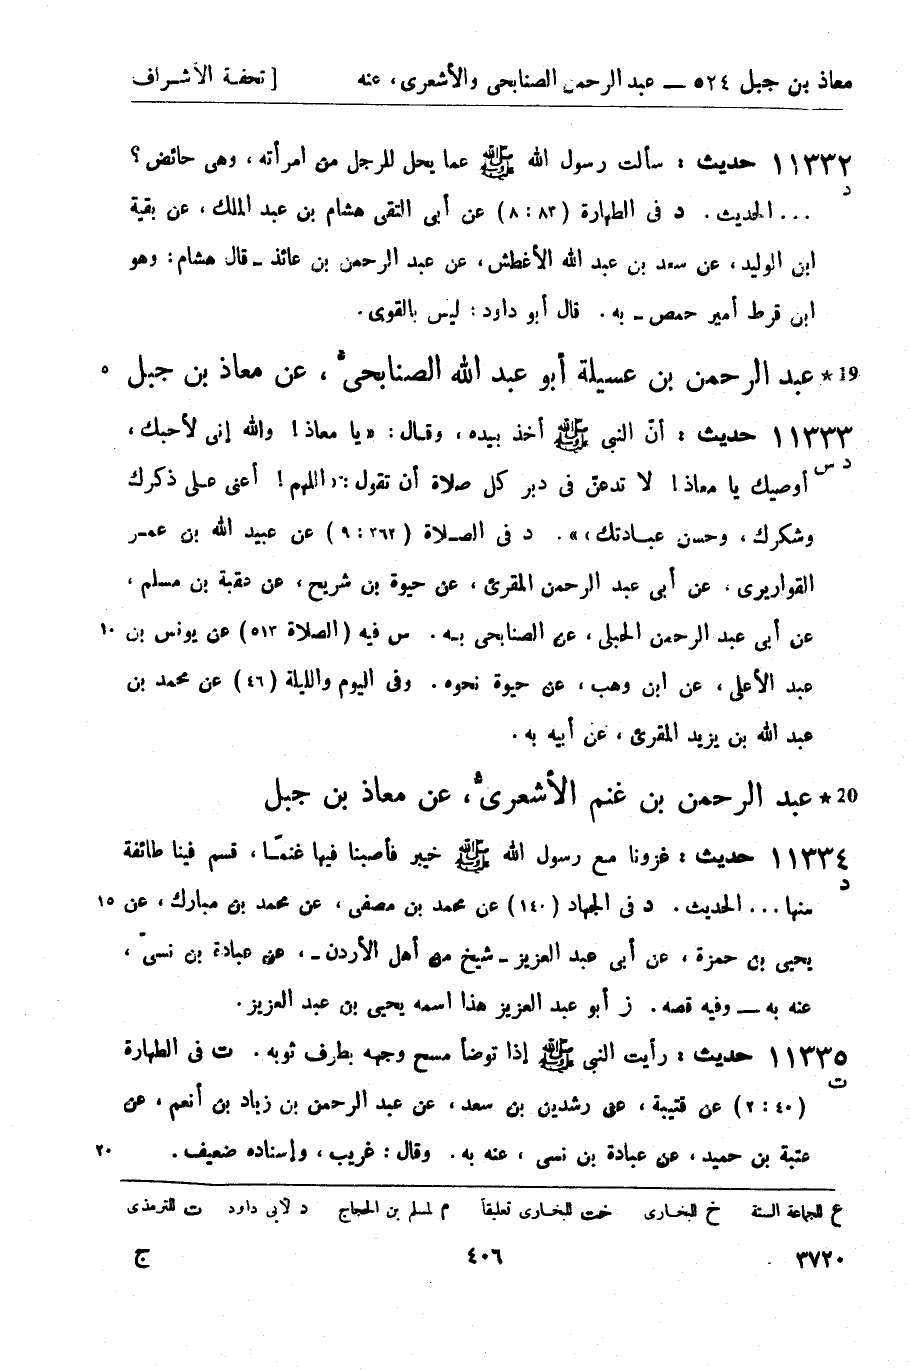 معاذ بن جبل ٥٢٤ — عبد الرحمن الصنابحى والأشعرى، عنه [ تحفة الأشراف
١١٣٣٢ حديث : سألت رسول الله ﷺ عما يحل للرجل من امرأته ، وهى حائض ؟
د
... الحديث . د فى الطهارة ( ٨٣ : ٨ ) عن أبى التقى هشام بن عبد الملك ، عن بقية
ابن الوليد ، عن سعد بن عبد الله الأغطش ، عن عبد الرحمن بن عائذ ـ قال هشام : وهو
ابن قرط أمير حمص ـ به . قال أبو داود : ليس بالقوى .
19 * عبد الرحمن بن عسيلة أبو عبد الله الصنابحى ، عن معاذ بن جبل ٥
١١٣٣٣ حديث : أنّ النبى ﷺ أخذ بيده ، وقال : «يا معاذ ! والله إنى لأحبك ،
د س
أوصيك يا معاذ ! لا تدعنّ فى دبر كل صلاة أن تقول : ‹ اللهم ! أعنى على ذكرك
وشكرك ، وحسن عبادتك › » . د فى الصلاة ( ٣٦٢ : ٩ ) عن عبيد الله بن عمر
القواريرى ، عن أبى عبد الرحمن المقرئ ، عن حيوة بن شريح ، عن عقبة بن مسلم ،
عن أبى عبد الرحمن الحبلى ، عن الصنابحى به . س فيه ( الصلاة ٥١٣ ) عن يونس بن ١٠
عبد الأعلى ، عن ابن وهب ، عن حيوة نحوه . وفى اليوم والليلة ( ٤٦ ) عن محمد بن
عبد الله بن يزيد المقرئ ، عن أبيه به .
20 * عبد الرحمن بن غنم الأشعرى ، عن معاذ بن جبل
١١٣٣٤ حديث : غزونا مع رسول الله ﷺ خيبر فأصبنا فيها غنمًا ، قسم فينا طائفة
د
منها ... الحديث . د فى الجهاد ( ١٤٠ ) عن محمد بن مصفى ، عن محمد بن مبارك ، عن ١٥
يحيى بن حمزة ، عن أبى عبد العزيز ـ شيخ من أهل الأردن ـ ، عن عبادة بن نسىّ ،
عنه به — وفيه قصه . ز أبو عبد العزيز هذا اسمه يحيى بن عبد العزيز .
١١٣٣٥ حديث : رأيت النبى ﷺ إذا توضأ مسح وجهه بطرف ثوبه . ت فى الطهارة
ت
( ٤٠ : ٢ ) عن قتيبة ، عن رشدين بن سعد ، عن عبد الرحمن بن زياد بن أنعم ، عن
عتبة بن حميد ، عن عبادة بن نسى ، عنه به . وقال : غريب ، وإسناده ضعيف . ٢٠
ع للجماعة الستة خ للبخارى خت للبخارى تعليقاً م لمسلم بن الحجاج د لأبى داود ت للترمذى
٣٧٢٠ ٤٠٦ ج